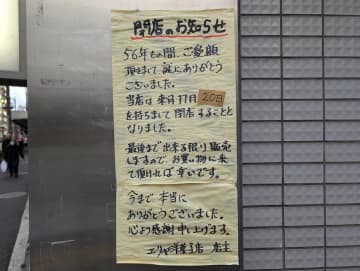 閉店のお知らせ
56年もの間、ご愛顧
頂きまして、誠にありがとう
ございました。
当店は来る11月20日
を持ちまして閉店することと
なりました。
最後まで出来る限り販売
しますので、お買い物に来
て頂ければ幸いです。
今まで本当に
ありがとうございました。
心より感謝申し上げます。
エリヤ洋菓子店 店主